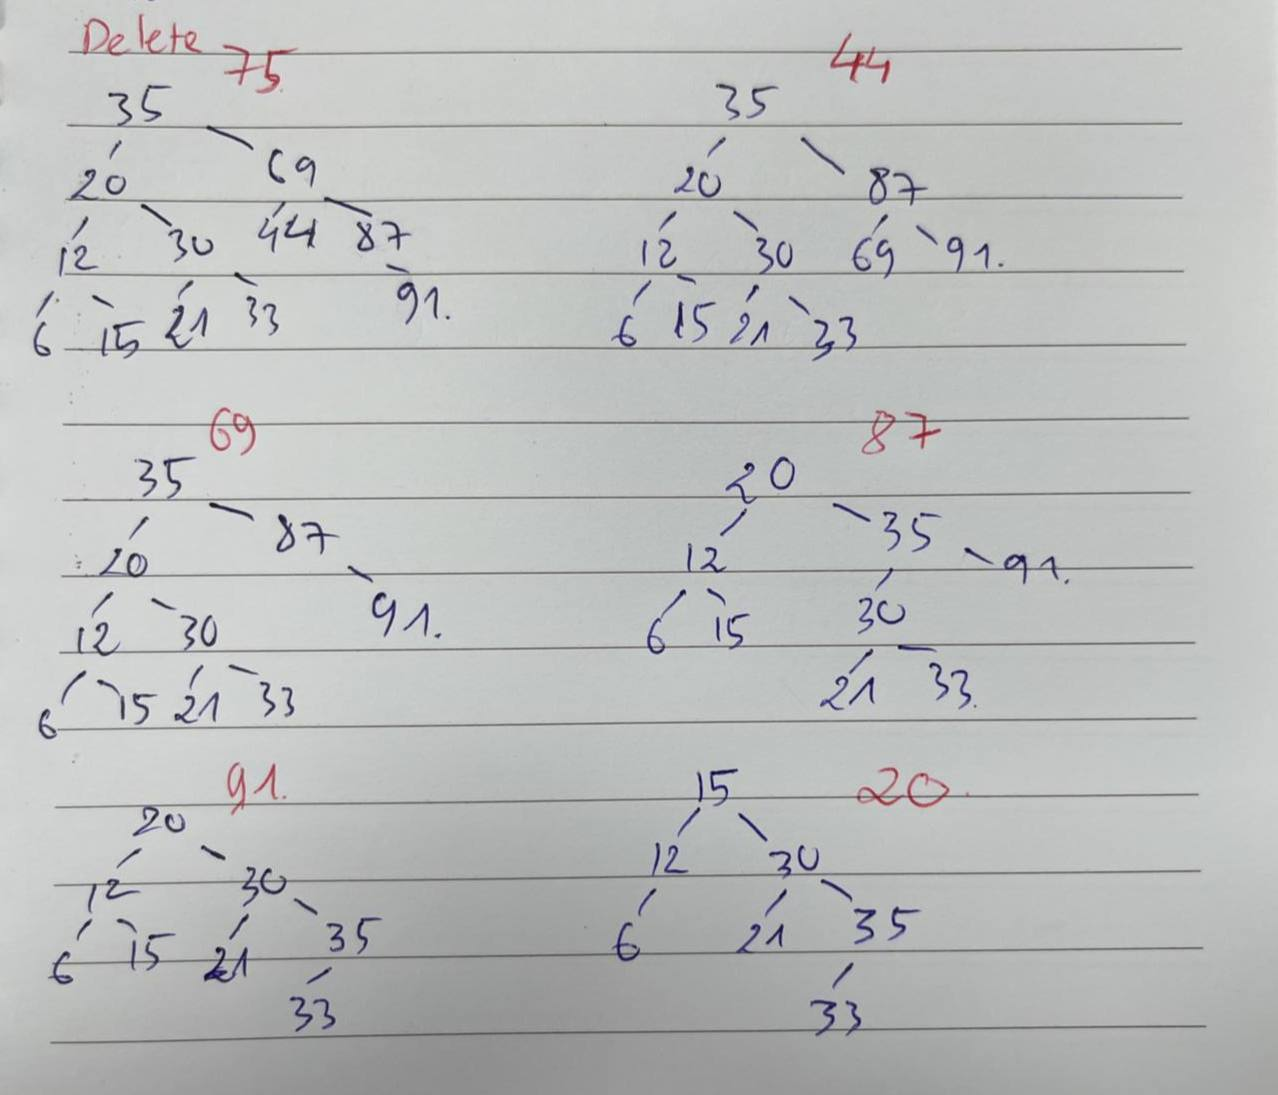 Delete 75
35
20 69
12 30 44 87
6 15 21 33 91.
44
35
20 87
12 30 69 91.
6 15 21 33
69
35
20 87
12 30 91.
6 15 21 33
87
20
12 35
6 15 30 91.
21 33.
91.
20
12 30
6 15 21 35
33
20.
15
12 30
6 21 35
33